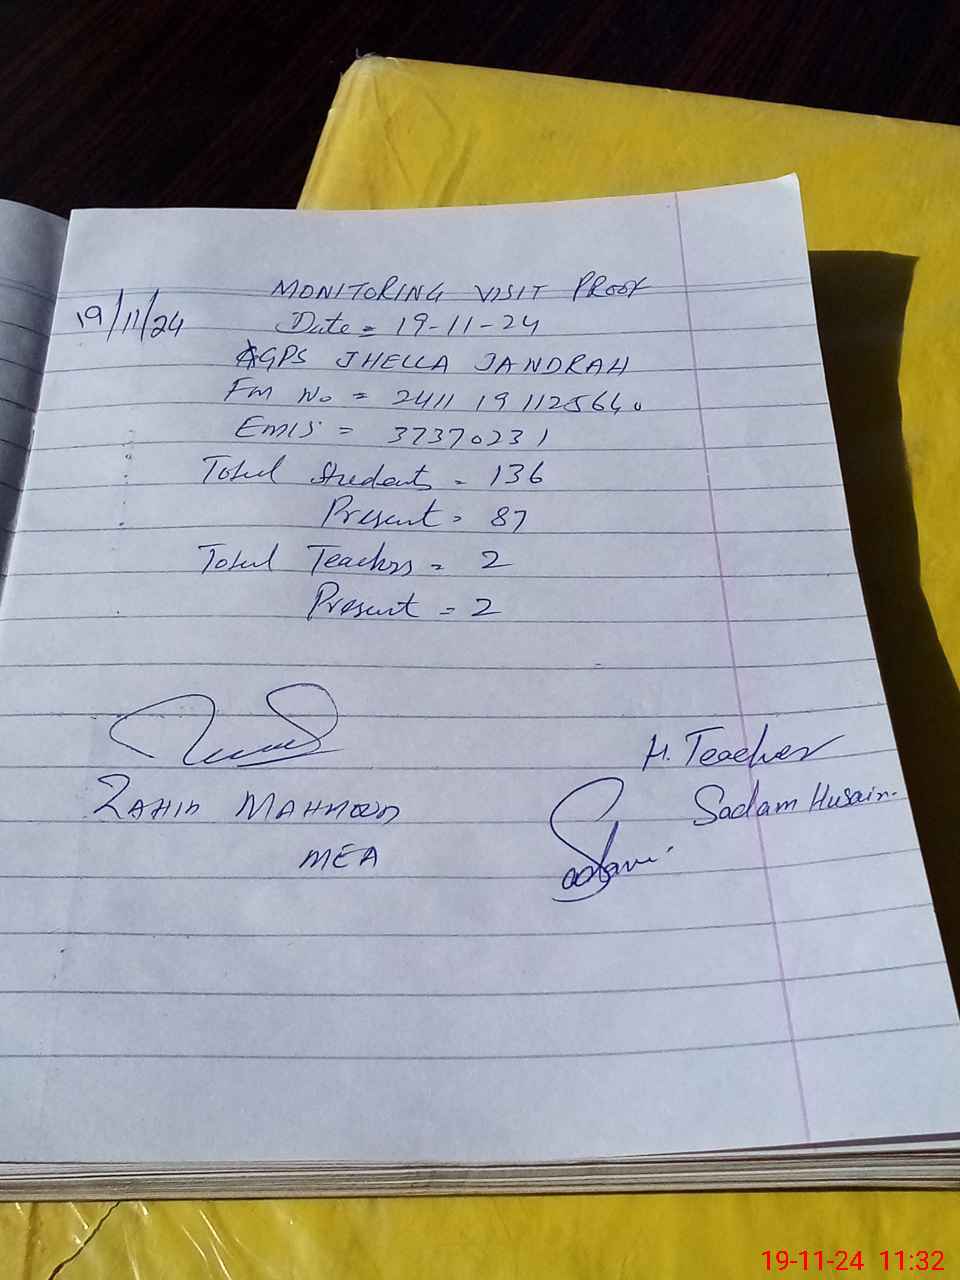 MONITORING VISIT PROOF
19/11/24
Date = 19-11-24
GPS JHELLA JANDRAH
Fm No = 2411 19 1125640
EMIS = 37370231
Total Students = 136
Present = 87
Total Teachrs = 2
Present = 2
H. Teacher
ZAHID MAHMOOD
Sadam Husain.
MEA
19-11-24 11:32